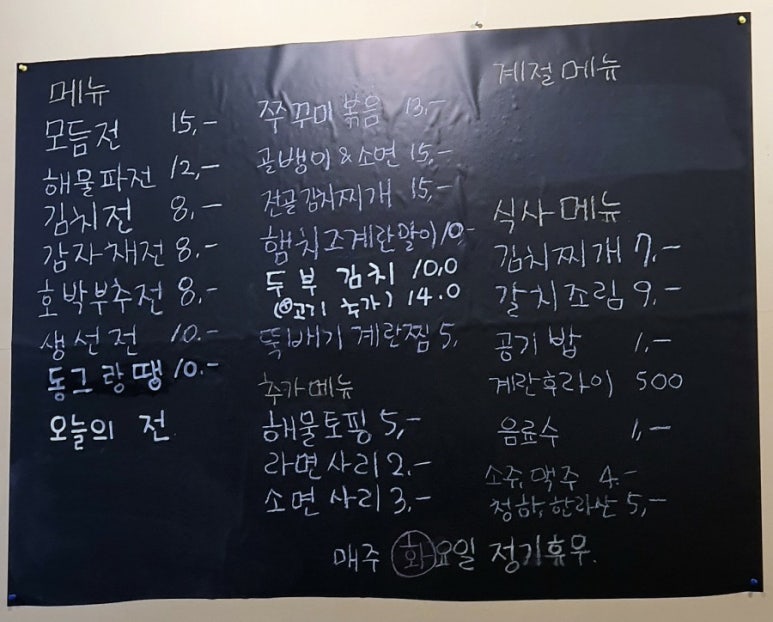 메뉴
모듬전 15,-
해물파전 12,-
김치전 8,-
감자채전 8.-
호박부추전 8,-
생선전 10.-
동그랑땡 10.-
오늘의 전
쭈꾸미볶음 13,-
골뱅이&소면 15,-
전골김치찌개 15,-
햄치즈계란말이 10,-
두부김치 10,0
(고기 추가) 14.0
뚝배기 계란찜 5,
추가메뉴
해물토핑 5,-
라면사리 2.-
소면사리 3,-
계절메뉴
식사메뉴
김치찌개 7,-
갈치조림 9,-
공기밥 1,-
계란후라이 500
음료수 1,-
소주,맥주 4.-
청하,한라산 5,-
매주 화요일 정기휴무.